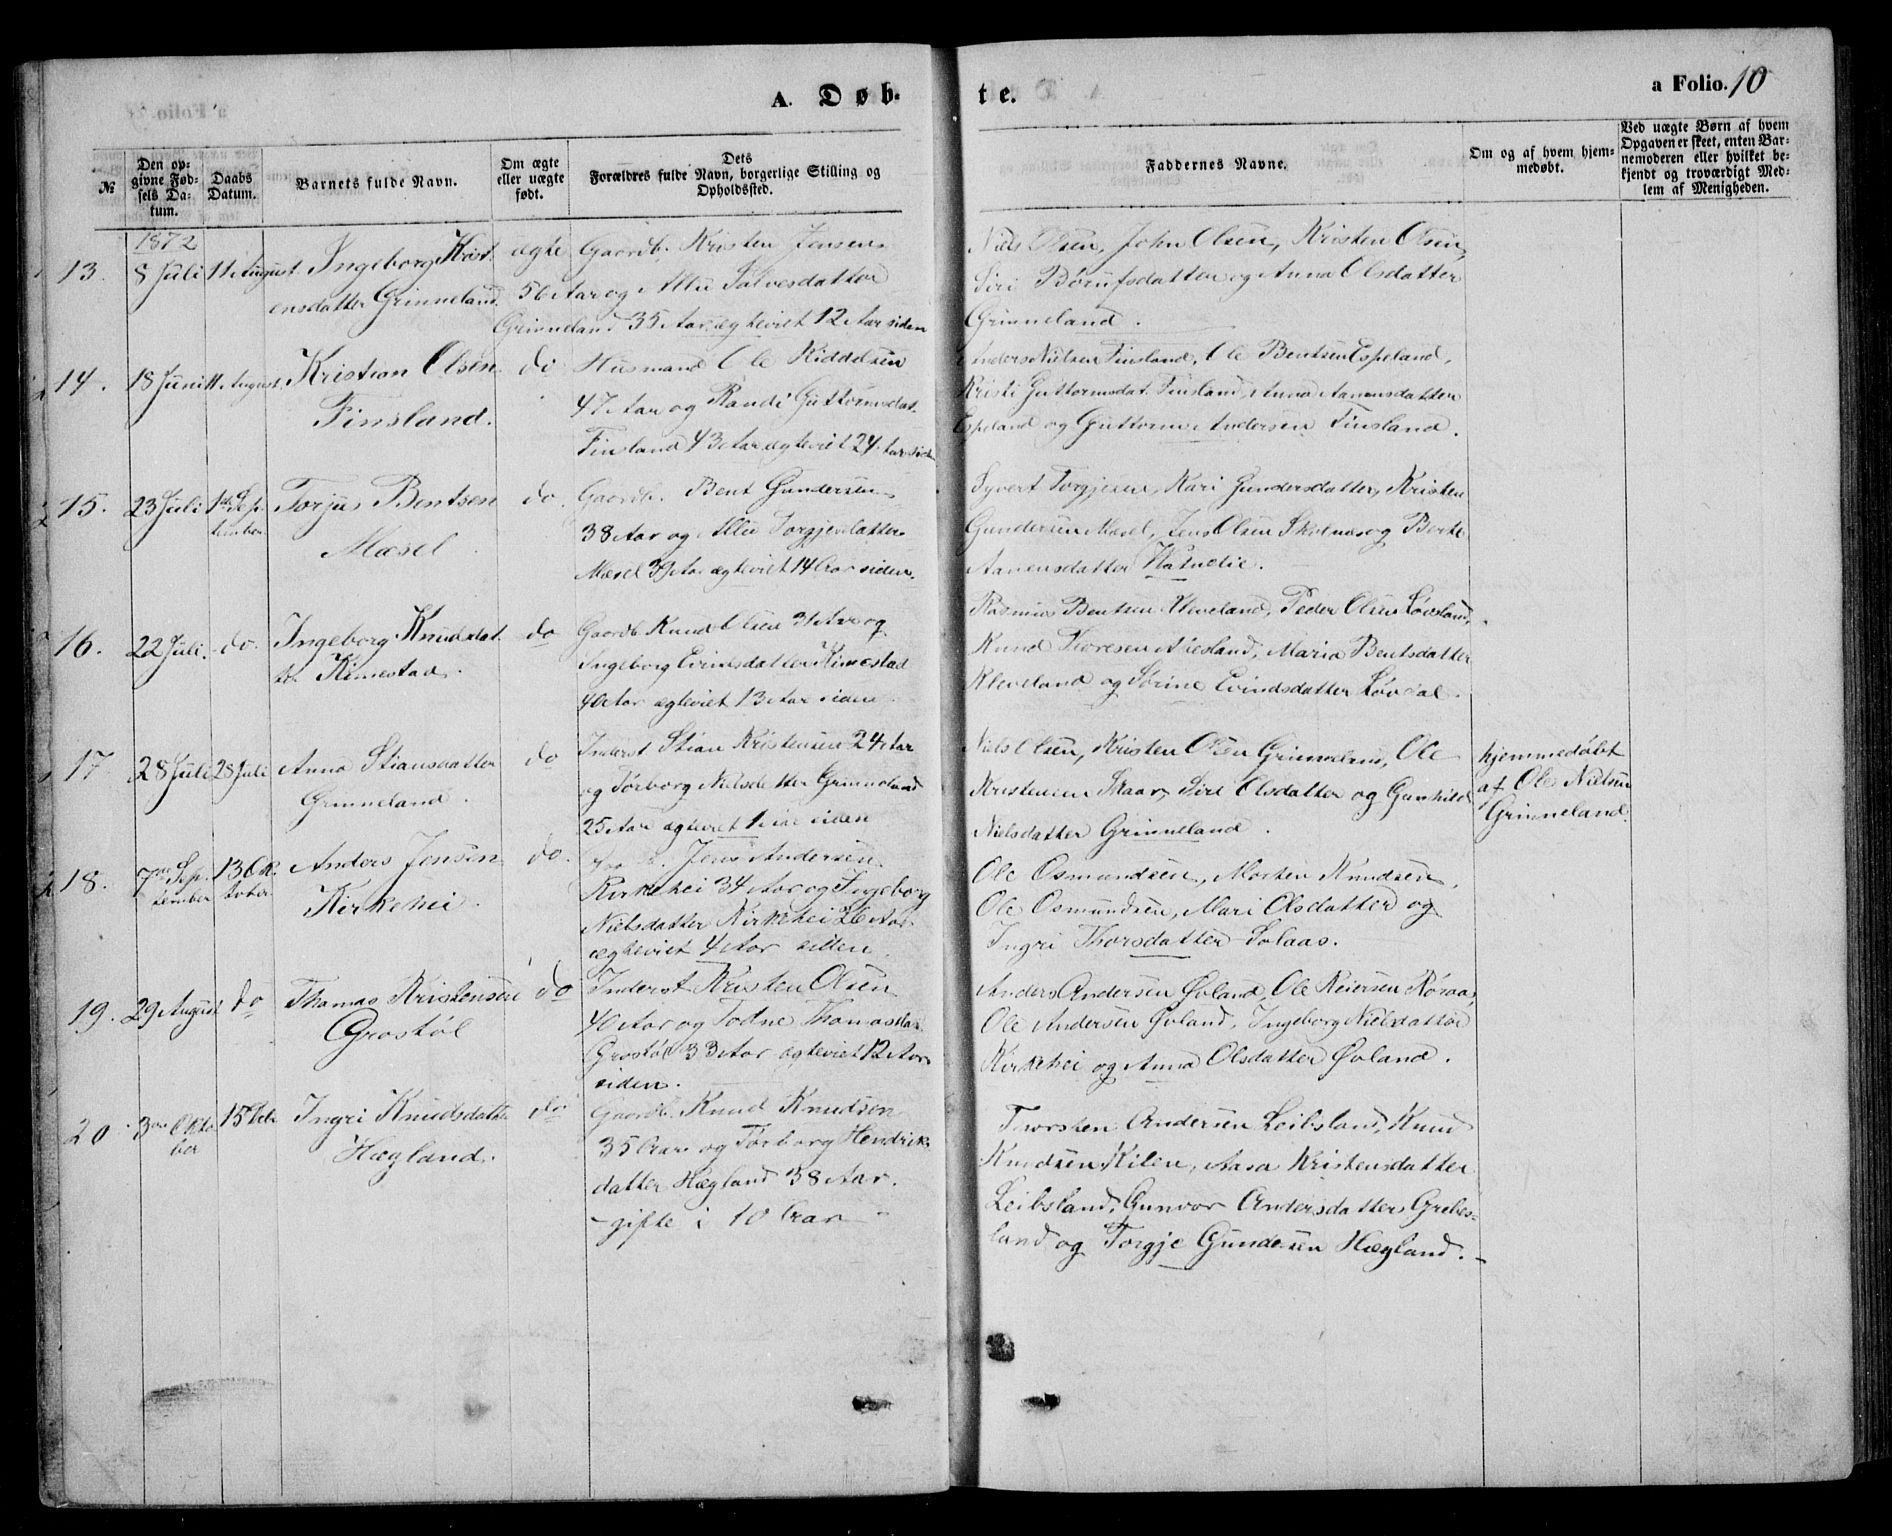 A. Døb-
te.
a Folio. 10
№
Den op-
givne Fød-
sels Da-
tum.
Daabs
Datum.
Barnets fulde Navn.
Om ægte
eller uægte
født.
Dets
Forældres fulde Navn, borgerlige Stilling og
Opholdssted.
Faddernes Navne.
Om og af hvem hjem-
medøbt.
Ved uægte Børn af hvem
Opgaven er skeet, enten Bar-
nemoderen eller hvilket be-
kjendt og troværdigt Med-
lem af Menigheden.
1872
13. 8 Juli 11 August Ingeborg Krist-
ensdatter Grinneland
ægte
Gaardb. Kristen Jensen
56 Aar og Allu Salvesdatter
Grinneland 35 Aar, ægteviet 12 Aar siden
Niels Olsen, John Olsen, Kristen Olsen,
Siri Børufsdatter og Anna Olsdatter
Grinneland.
14. 18 Juni 11 August Kristian Olsen
Finsland.
do
Husmand Ole Kiddelsen
47 Aar og Randi Guttormsdat.
Finsland 43 Aar ægteviet 24 Aar siden
Anders Nielsen Finsland, Ole Bentsen Espeland,
Kristi Guttormsdat. Finsland, Anna Aanensdatter
Espeland og Guttorm Andersen Finsland.
15. 23 Juli 1ste Sep-
tember
Torjus Bentsen
Mæsel
do.
Gaardb. Bent Gundersen
38 Aar og Allu Torgjesdatter
Mæsel 39 Aar ægteviet 14 Aar siden.
Syvert Torgjesen, Kari Gundersdatter, Kristen
Gundersen Mæsel, Jens Olsen Skolnæs og Berte
Aanensdatter
16. 22 Juli. do. Ingeborg Knudsdat-
ter Kimestad.
do
Gaardb. Knud Olsen 31 Aar og
Ingeborg Evindsdatter Kimestad
40 Aar ægteviet 13 Aar siden
Rasmus Bentsen Kleveland, Peder Olsen Løvsland,
Knud Toresen, Maria Bentsdatter
Kleveland og Sørine Evindsdatter Løvdal.
17 28 Juli 28 Juli Anna Stiansdatter
Grinneland.
do
Inderst Stian Kristensen 24 Aar
og Tørborg Nielsdatter Grinneland
25 Aar ægteviet 1 Aar siden
Niels Olsen, Kristen Olsen Grinneland, Ole
Kristensen Skaar, Siri Olsdatter og Gunhild
Nielsdatter Grinneland.
hjemmedøbt
af Ole Nielsen
Grinneland.
18. 7de Sep-
tember
13 Ok-
tober
Anders Jensen
Kirkehei.
do.
Jens Andersen
Kirkehei 34 Aar og Ingeborg
Nielsdatter Kirkehei 26 Aar
ægteviet 4 Aar siden.
Ole Osmundsen, Morten Knudsen,
Ole Osmundsen, Mari Olsdatter og
Ingri Thorsdatter Solaas.
19. 29 August do Thomas Kristensen
Grostøl
do
Inderst Kristen Olsen
40 Aar og Todne Thomasdat.
Grostøl 33 Aar ægteviet 12 Aar
siden.
Anders Andersen Øvland, Ole Reiersen Røraas,
Ole Andersen Øvland, Ingeborg Nielsdatter
Kirkehei og Anna Olsdatter Øvland.
20. 3die Okto-
ber
15de Ingri Knudsdatter
Hægland.
do
Gaardb. Knud Knudsen
35 Aar og Tørborg Hendriks-
datter Hægland 38 Aar.
- gifte i 10 Aar -
Thorsten Andersen Leibsland, Knud
Knudsen Kilen, Aasa Kristensdatter
Leibsland, Gunvor Andersdatter Grebes-
land og Torgje Gundersen Hægland. -